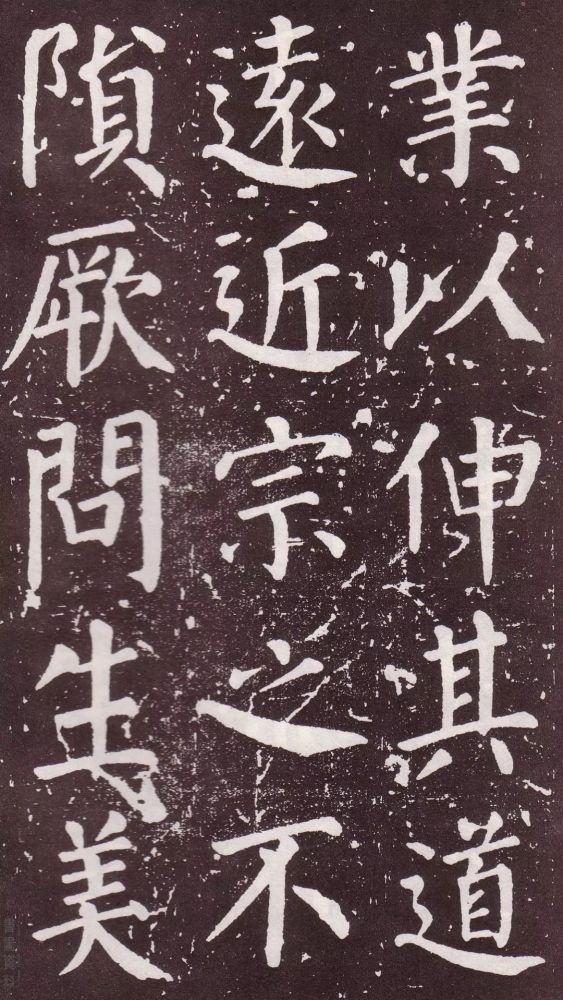 業以伸其道
遠近宗之不
隕厥問生美